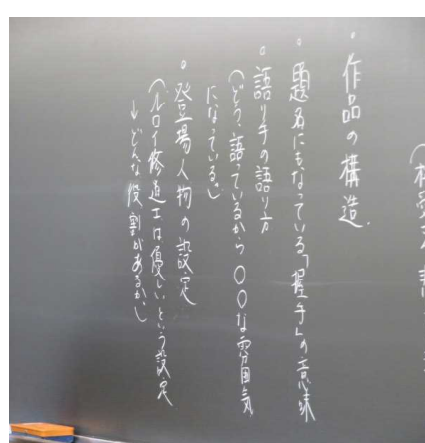 ・作品の構造
・題名にもなっている「握手」の意味
・語り手の語り方
(どう語っているから〇〇な雰囲気
になっている。)
・登場人物の設定
(ルロイ修道士は優しいという設定
→どんな役割があるか。)